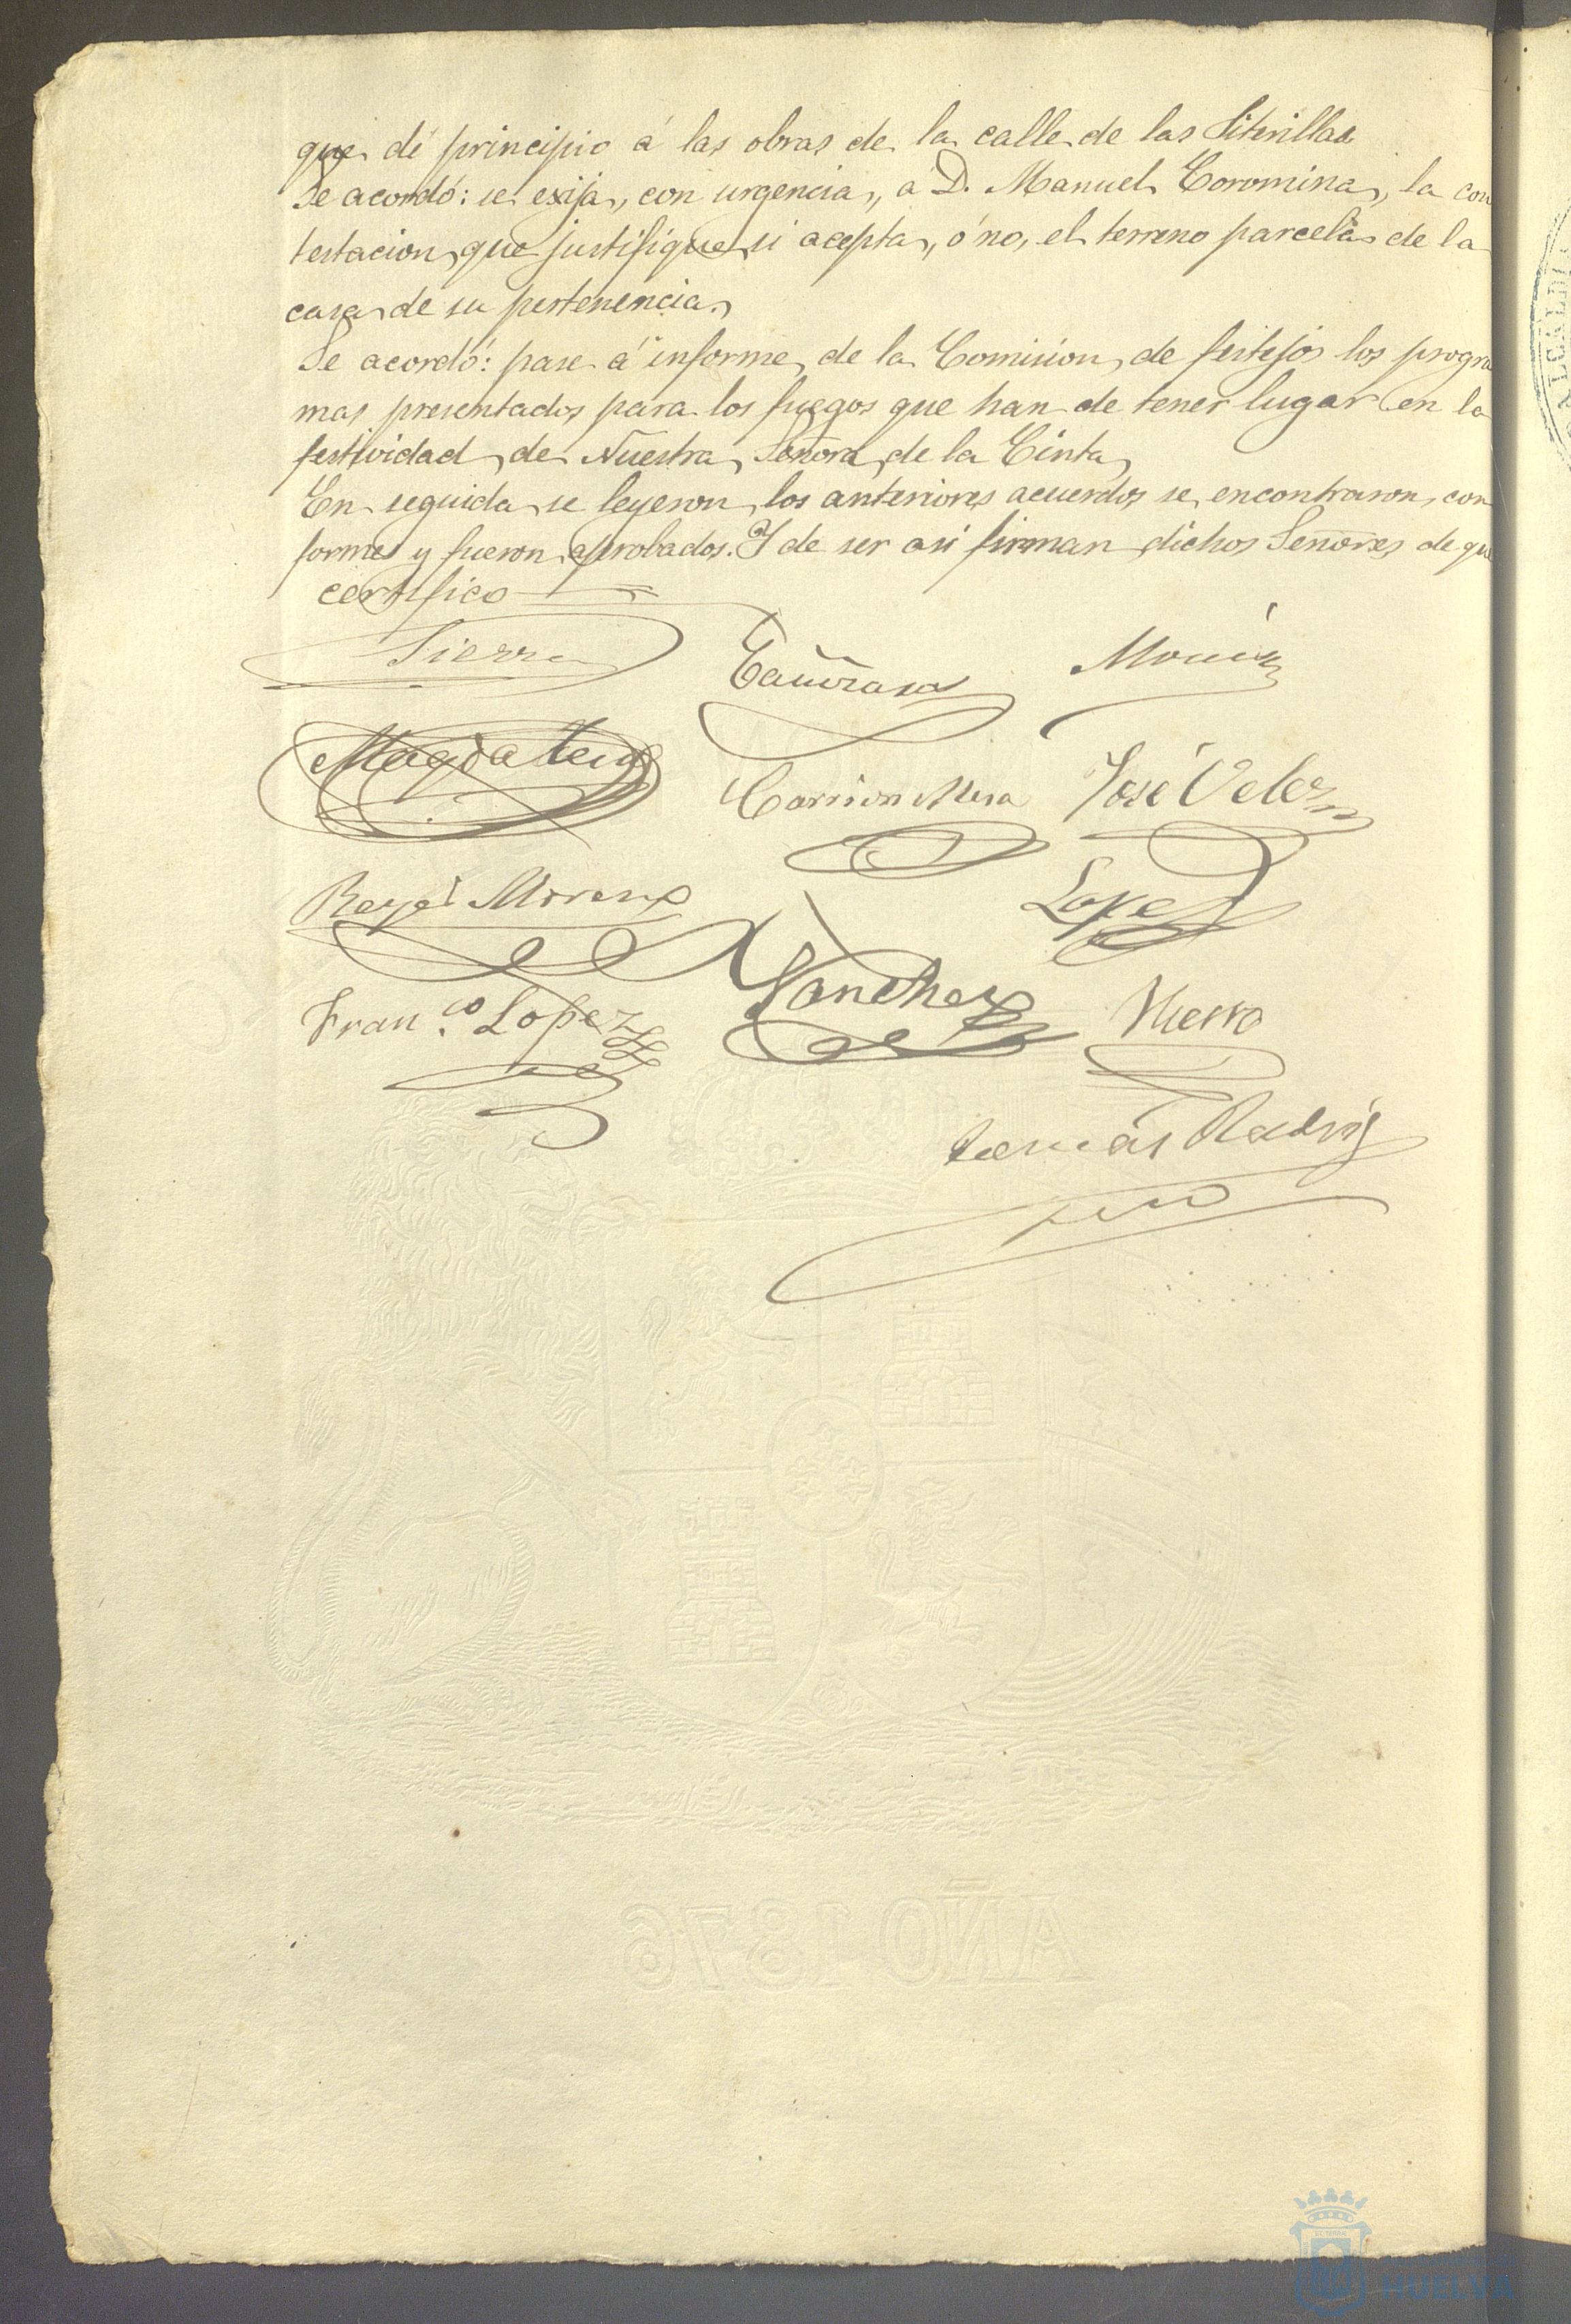 que dé principio á las obras de la calle de las Siterillas
Se acordó: se exija, con urgencia, a D. Manuel Coromina, la con
testacion que justifique si acepta, ó no, el terreno parcela de la
casa de su pertenencia.
Se acordó: pase á informe de la Comision de festejos los progra
mas presentados para los fuegos que han de tener lugar en la
festividad de Nuestra Señora de la Cinta
En seguida se leyeron los anteriores acuerdos se encontraron con
formes y fueron aprobados. Y de ser asi firman dichos Señores de que
certifico
Sierra
Magdalena
Carrion Mesa José Velez
Moreno Lopez
Fran.co Lopez Sanchez Hierro
Tomás
AÑO 1876
HUELVA